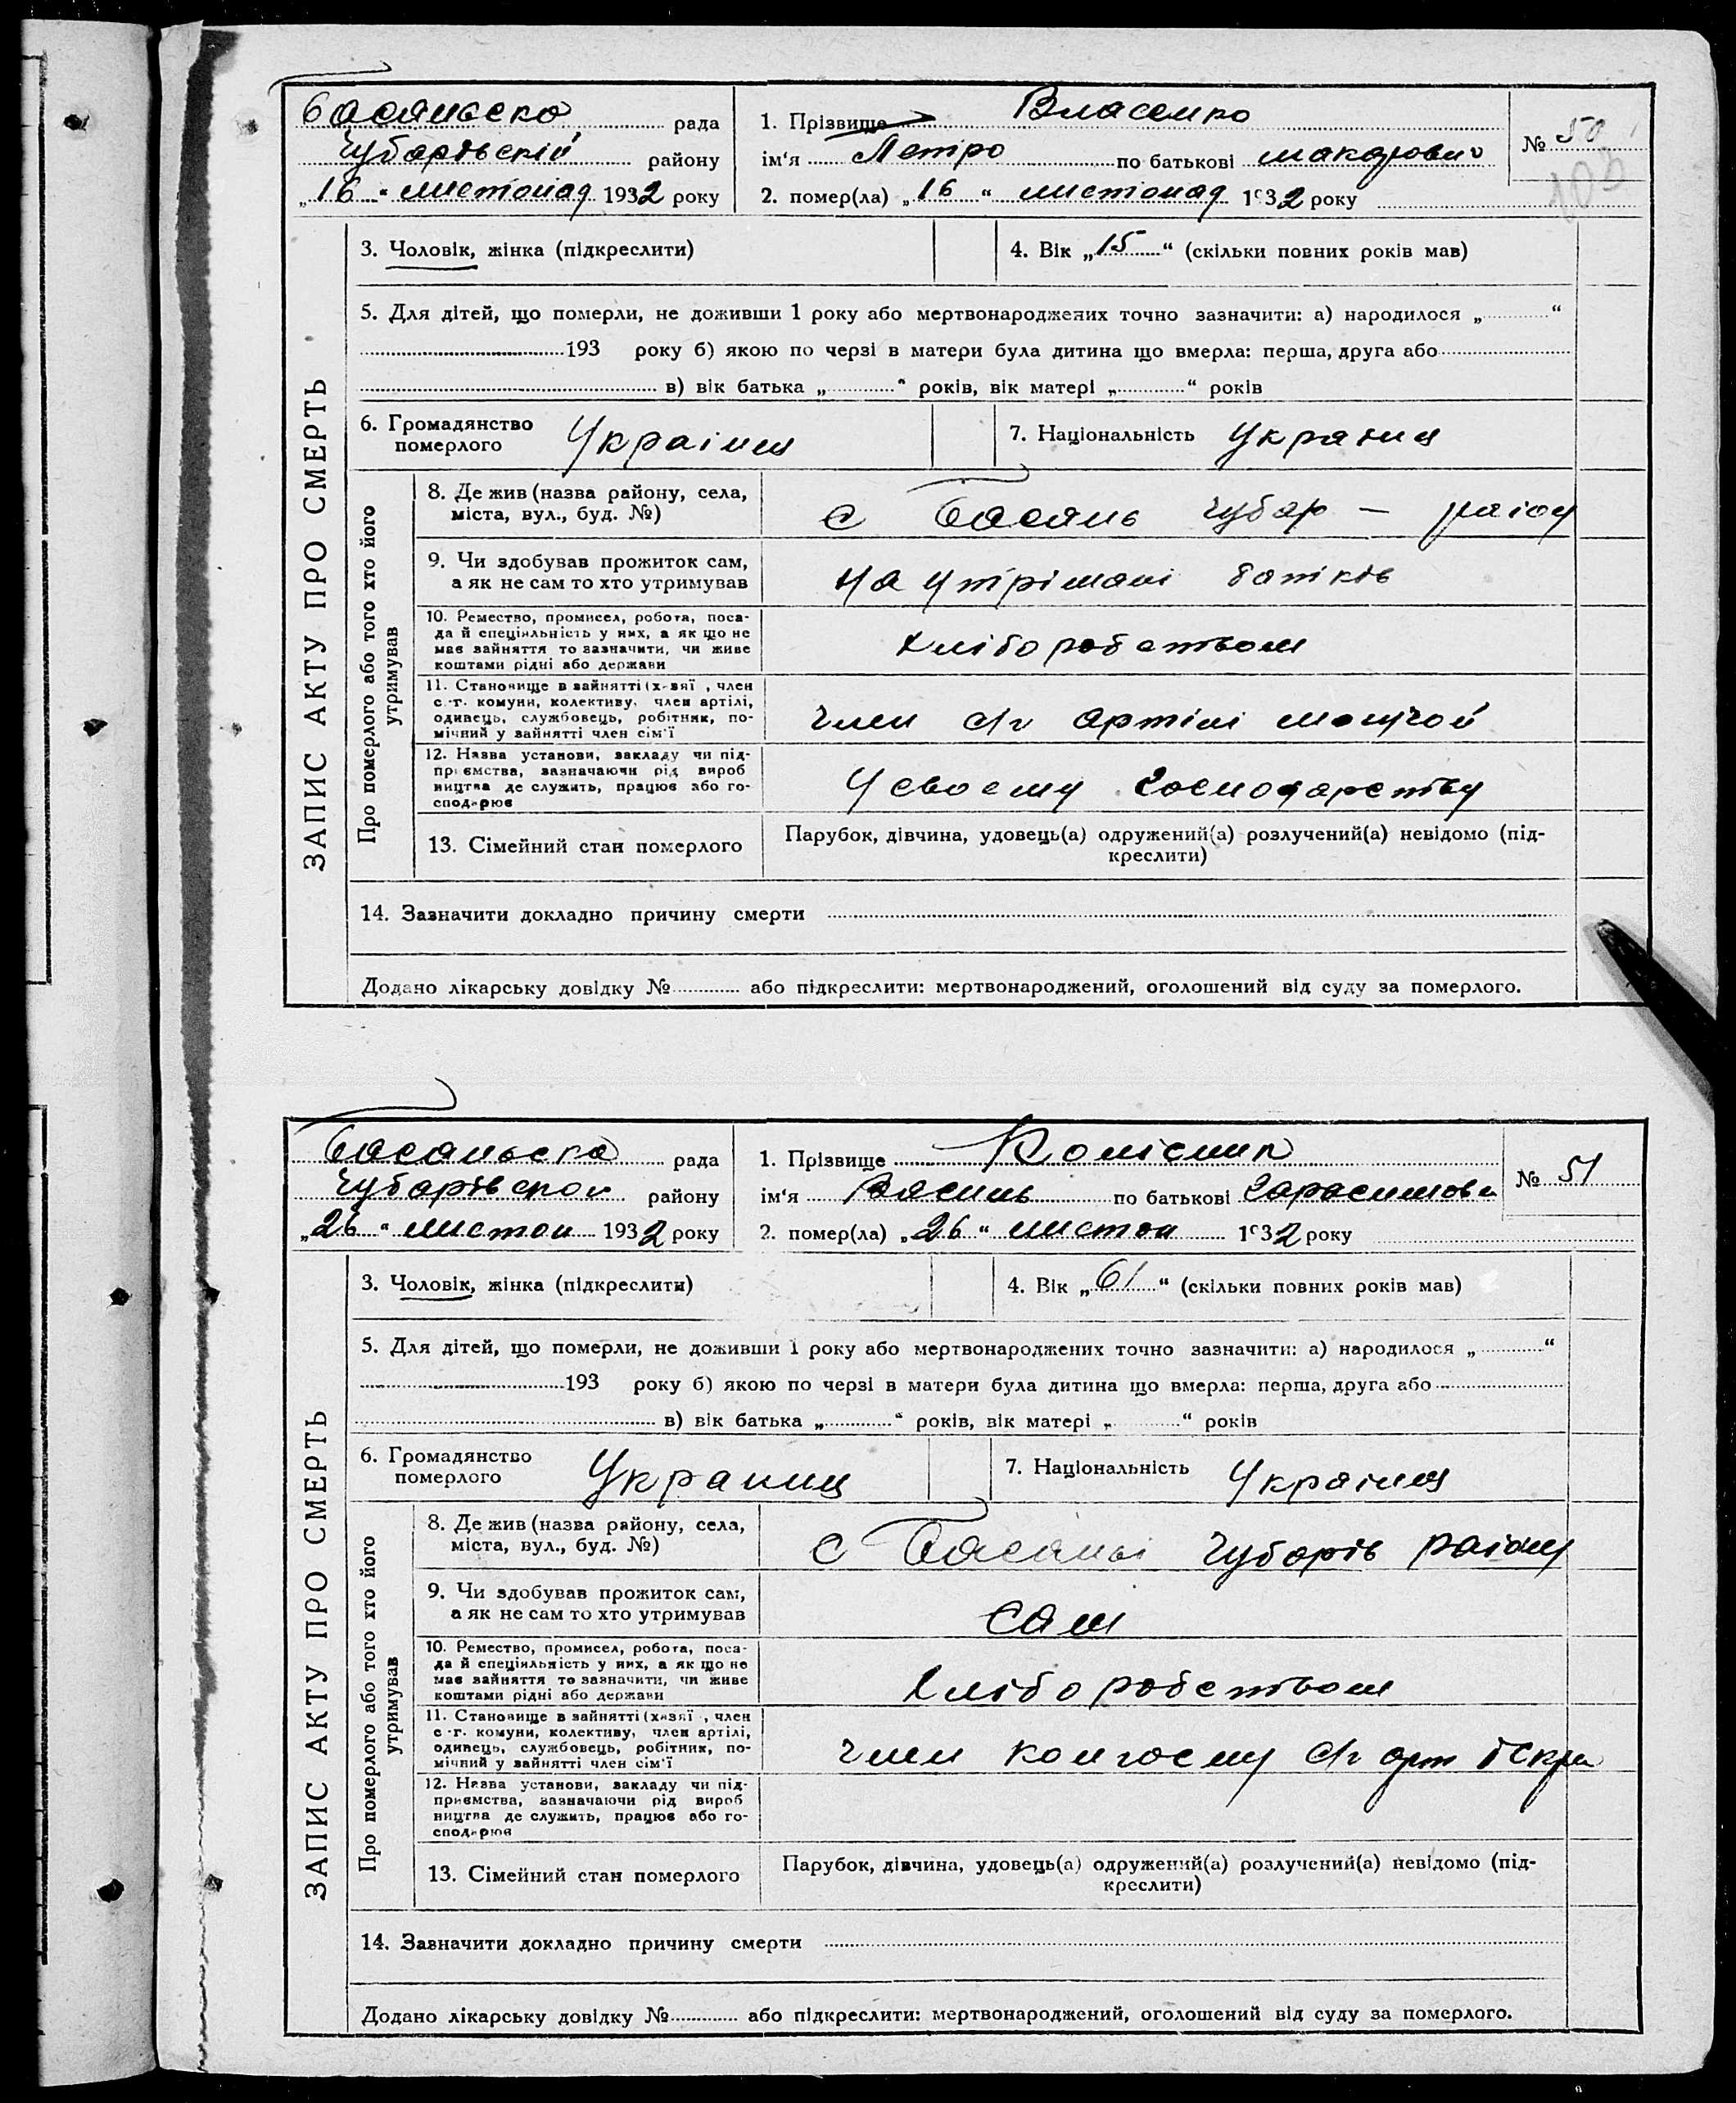 Басансько рада
Чубарівській району
„16“ листопад 1932 року
1. Прізвище Власенко
ім'я Петро по батькові макарович
2. помер(ла) „16“ листопад 1932 року
№ 50
103
ЗАПИС АКТУ ПРО СМЕРТЬ
3. Чоловік, жінка (підкреслити)
4. Вік „15“ (скільки повних років мав)
5. Для дітей, що померли, не доживши 1 року або мертвонароджених точно зазначити: а) народилося „ “
193 року б) якою по черзі в матери була дитина що вмерла: перша, друга або
в) вік батька „ “ років, вік матері „ “ років
6. Громадянство
померлого
Україна
7. Національність Украина
Про померлого або того хто його
утримував
8. Де жив (назва району, села,
міста, вул., буд. №)
с Басань Чубар — раіон
9. Чи здобував прожиток сам,
а як не сам то хто утримував
На утрімані батків
10. Ремество, промисел, робота, поса-
да й спеціяльність у них, а як що не
має зайняття то зазначити, чи живе
коштами рідні або держави
Хліборобством
11. Становище в зайнятті (х-зяї , член
с.-г. комуни, колективу, член артілі,
одинець, службовець, робітник, по-
мічний у зайнятті член сім'ї
член с/г артілі
12. Назва установи, закладу чи під-
приємства, зазначаючи рід вироб
ництва де служить, працює або го-
сподарює
У своєму господарству
13. Сімейний стан померлого
Парубок, дівчина, удовець(а) одружений(а) розлучений(а) невідомо (під-
креслити)
14. Зазначити докладно причину смерти
Додано лікарську довідку № або підкреслити: мертвонароджений, оголошений від суду за померлого.
Басанська рада
Чубарівской району
„26“ листоп 1932 року
1. Прізвище Колісник
ім'я Василь по батькові Гарасимови
2. помер(ла) „26“ листоп 1932 року
№ 51
ЗАПИС АКТУ ПРО СМЕРТЬ
3. Чоловік, жінка (підкреслити)
4. Вік „61“ (скільки повних років мав)
5. Для дітей, що померли, не доживши 1 року або мертвонароджених точно зазначити: а) народилося „ “
193 року б) якою по черзі в матери була дитина що вмерла: перша, друга або
в) вік батька „ “ років, вік матері „ “ років
6. Громадянство
померлого
Украинц
7. Національність Україна
Про померлого або того хто його
утримував
8. Де жив (назва району, села,
міста, вул., буд. №)
с Басані Чубарів раіону
9. Чи здобував прожиток сам,
а як не сам то хто утримував
сам
10. Ремество, промисел, робота, поса-
да й спеціяльність у них, а як що не
має зайняття то зазначити, чи живе
коштами рідні або держави
Хліборобством
11. Становище в зайнятті (хазяї , член
с.-г. комуни, колективу, член артілі,
одинець, службовець, робітник, по-
мічний у зайнятті член сім'ї
член колгоспу с/г арт Іскра
12. Назва установи, закладу чи під-
приємства, зазначаючи рід вироб
ництва де служить, працює або го-
сподарює
13. Сімейний стан померлого
Парубок, дівчина, удовець(а) одружений(а) розлучений(а) невідомо (під-
креслити)
14. Зазначити докладно причину смерти
Додано лікарську довідку № або підкреслити: мертвонароджений, оголошений від суду за померлого.